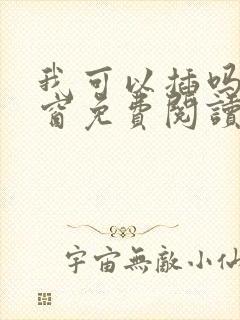 我可以插吗
窗免費閱讀
宇宙無敵小仙